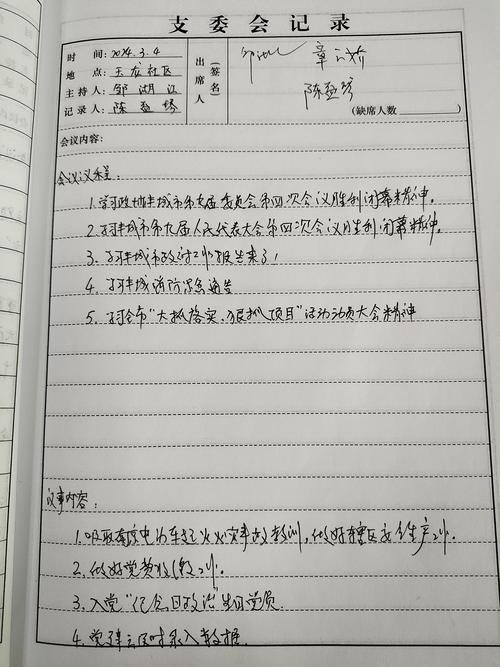 支委会记录
时 间: 2024.3.4
地 点: 玉龙社区
主持人: 邹湖江
记录人: 陈盈琴
出席人
(签名)
章
陈盈琴
(缺席人数)
会议内容:
会议议程:
1. 学习政协丰城市第九届委员会第四次会议胜利闭幕精神。
2. 学习丰城市第九届人民代表大会第四次会议胜利闭幕精神。
3. 学习丰城市政府工作报告来了!
4. 学习丰城消防紧急通告
5. 学习全市“大抓落实、狠抓项目”活动动员大会精神
议事内容:
1. 吸取南京电动车起火火灾事故教训,做好辖区安全生产工作。
2. 做好党费收缴工作。
3. 入党“纪念日政治”生日党员
4. 党建云及时录入数据